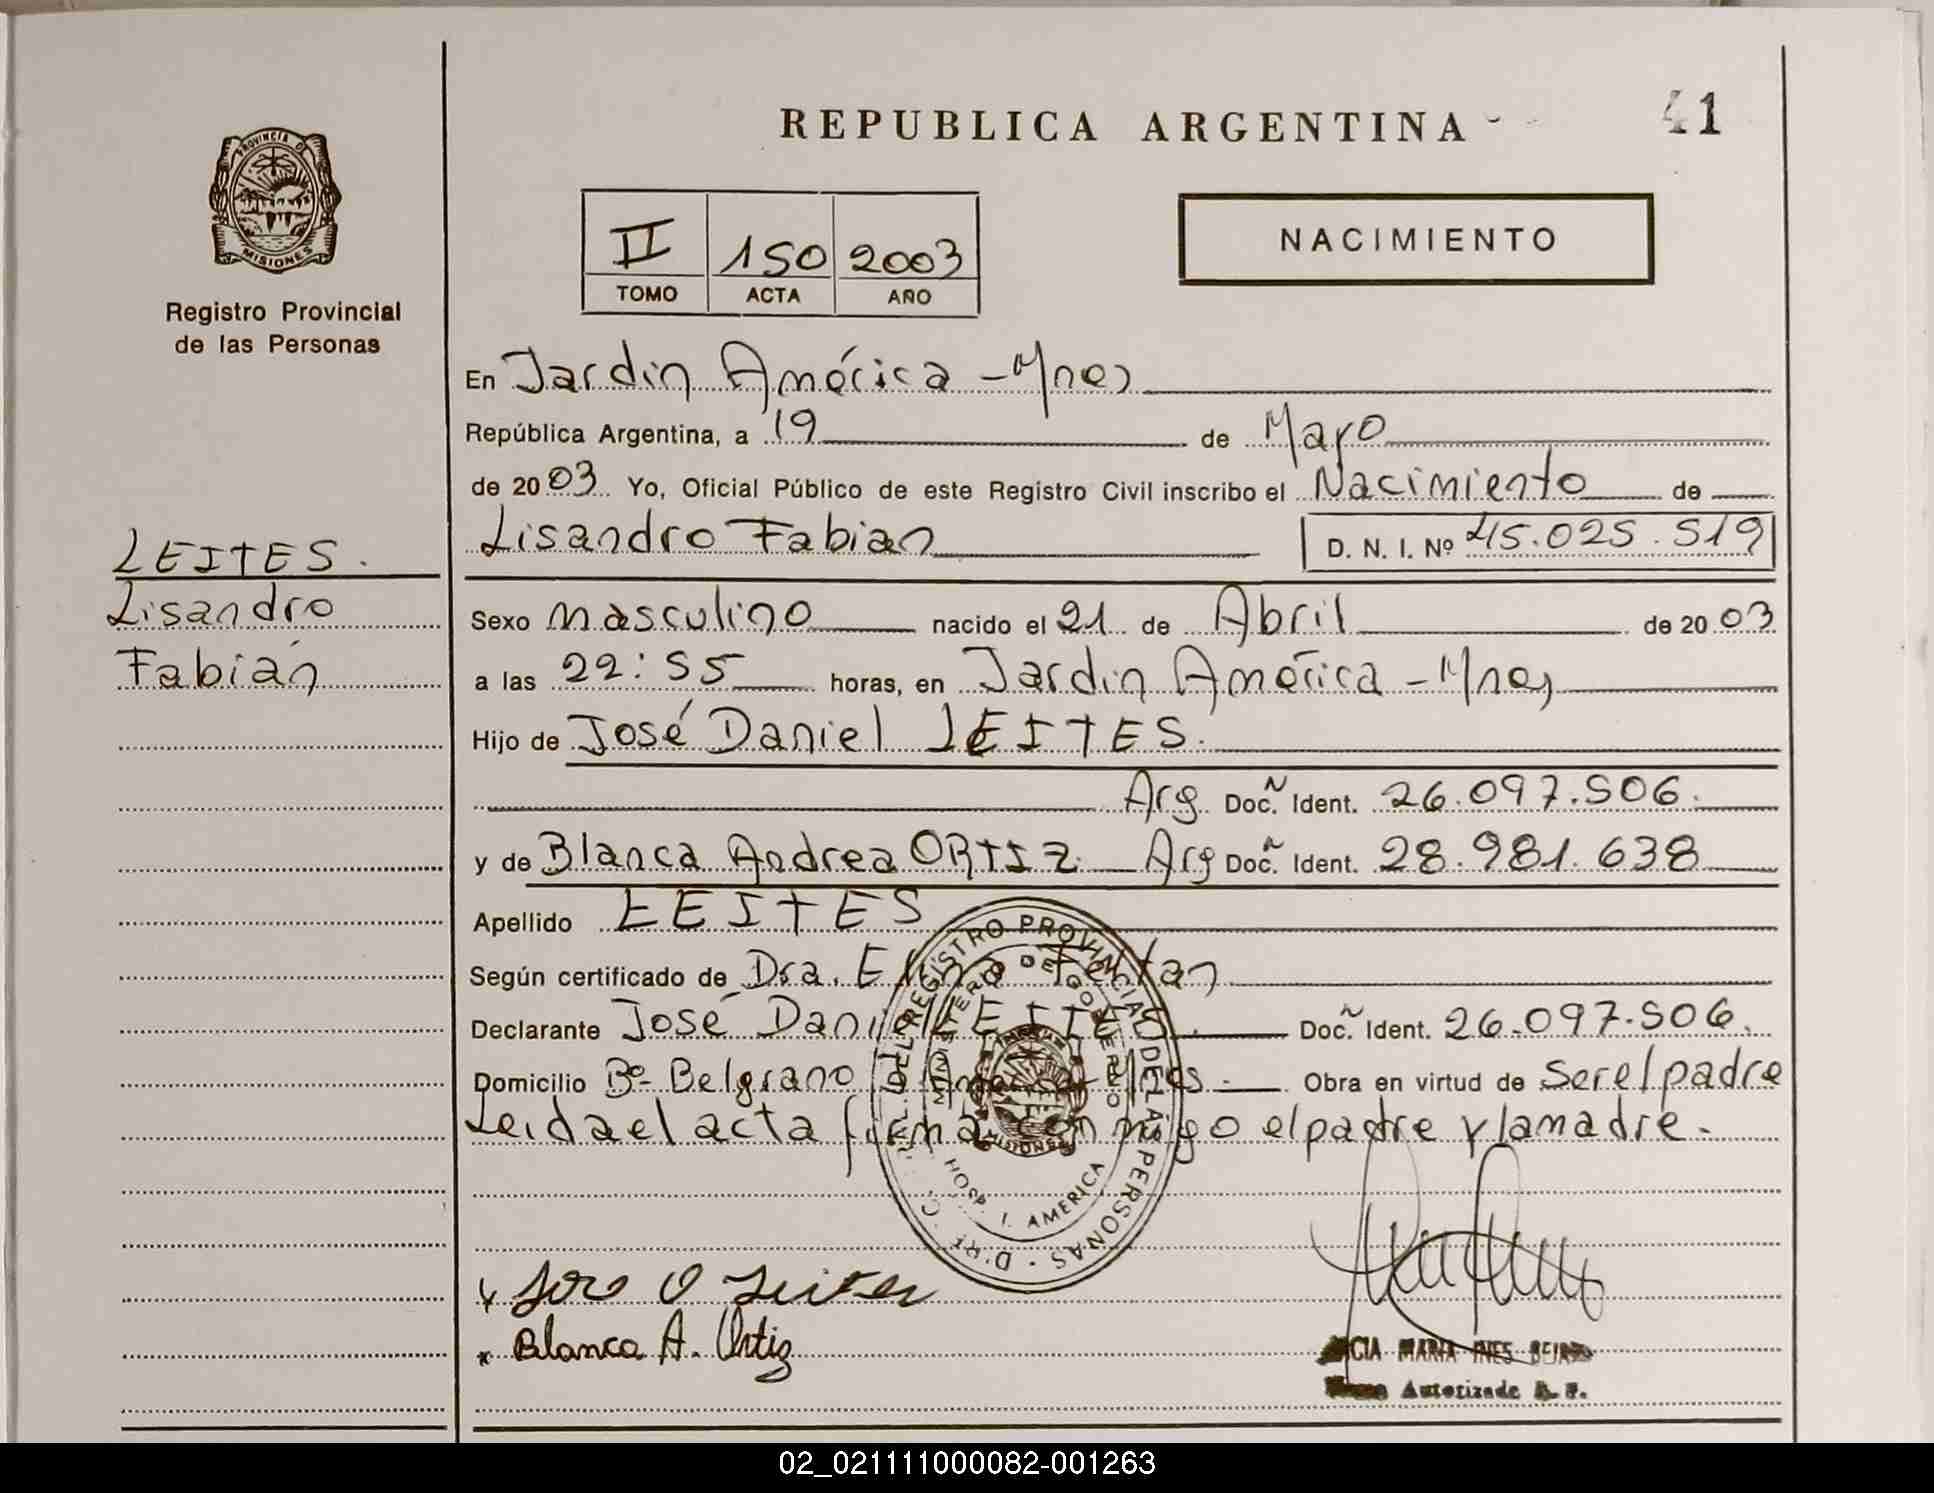 REPUBLICA ARGENTINA
41
PROVINCIA DE MISIONES
Registro Provincial
de las Personas
II 150 2003
TOMO ACTA AÑO
NACIMIENTO
En Jardin América - Mnes
República Argentina, a 19 de Mayo
de 2003 Yo, Oficial Público de este Registro Civil inscribo el Nacimiento de
Lisandro Fabian D. N. I. Nº 45.025.519
LEITES.
Lisandro
Fabián
Sexo masculino nacido el 21 de Abril de 2003
a las 22:55 horas, en Jardin América - Mnes
Hijo de José Daniel LEITES.
Arg Doc. Ident. 26.097.506.
y de Blanca Andrea ORTIZ Arg Doc. Ident. 28.981.638
Apellido LEITES
Según certificado de Dra.
Declarante José Daniel LEITES. Doc. Ident. 26.097.506.
Domicilio Bº Belgrano Obra en virtud de ser el padre
Leida el acta firma conmigo el padre y la madre.
DEL REGISTRO PROVINCIAL DE LAS PERSONAS
MINISTERIO DE GOBIERNO
MISIONES
HOSP. J. AMERICA
Leites
Blanca A. Ortiz
MARIA INES
Autorizada
02_021111000082-001263